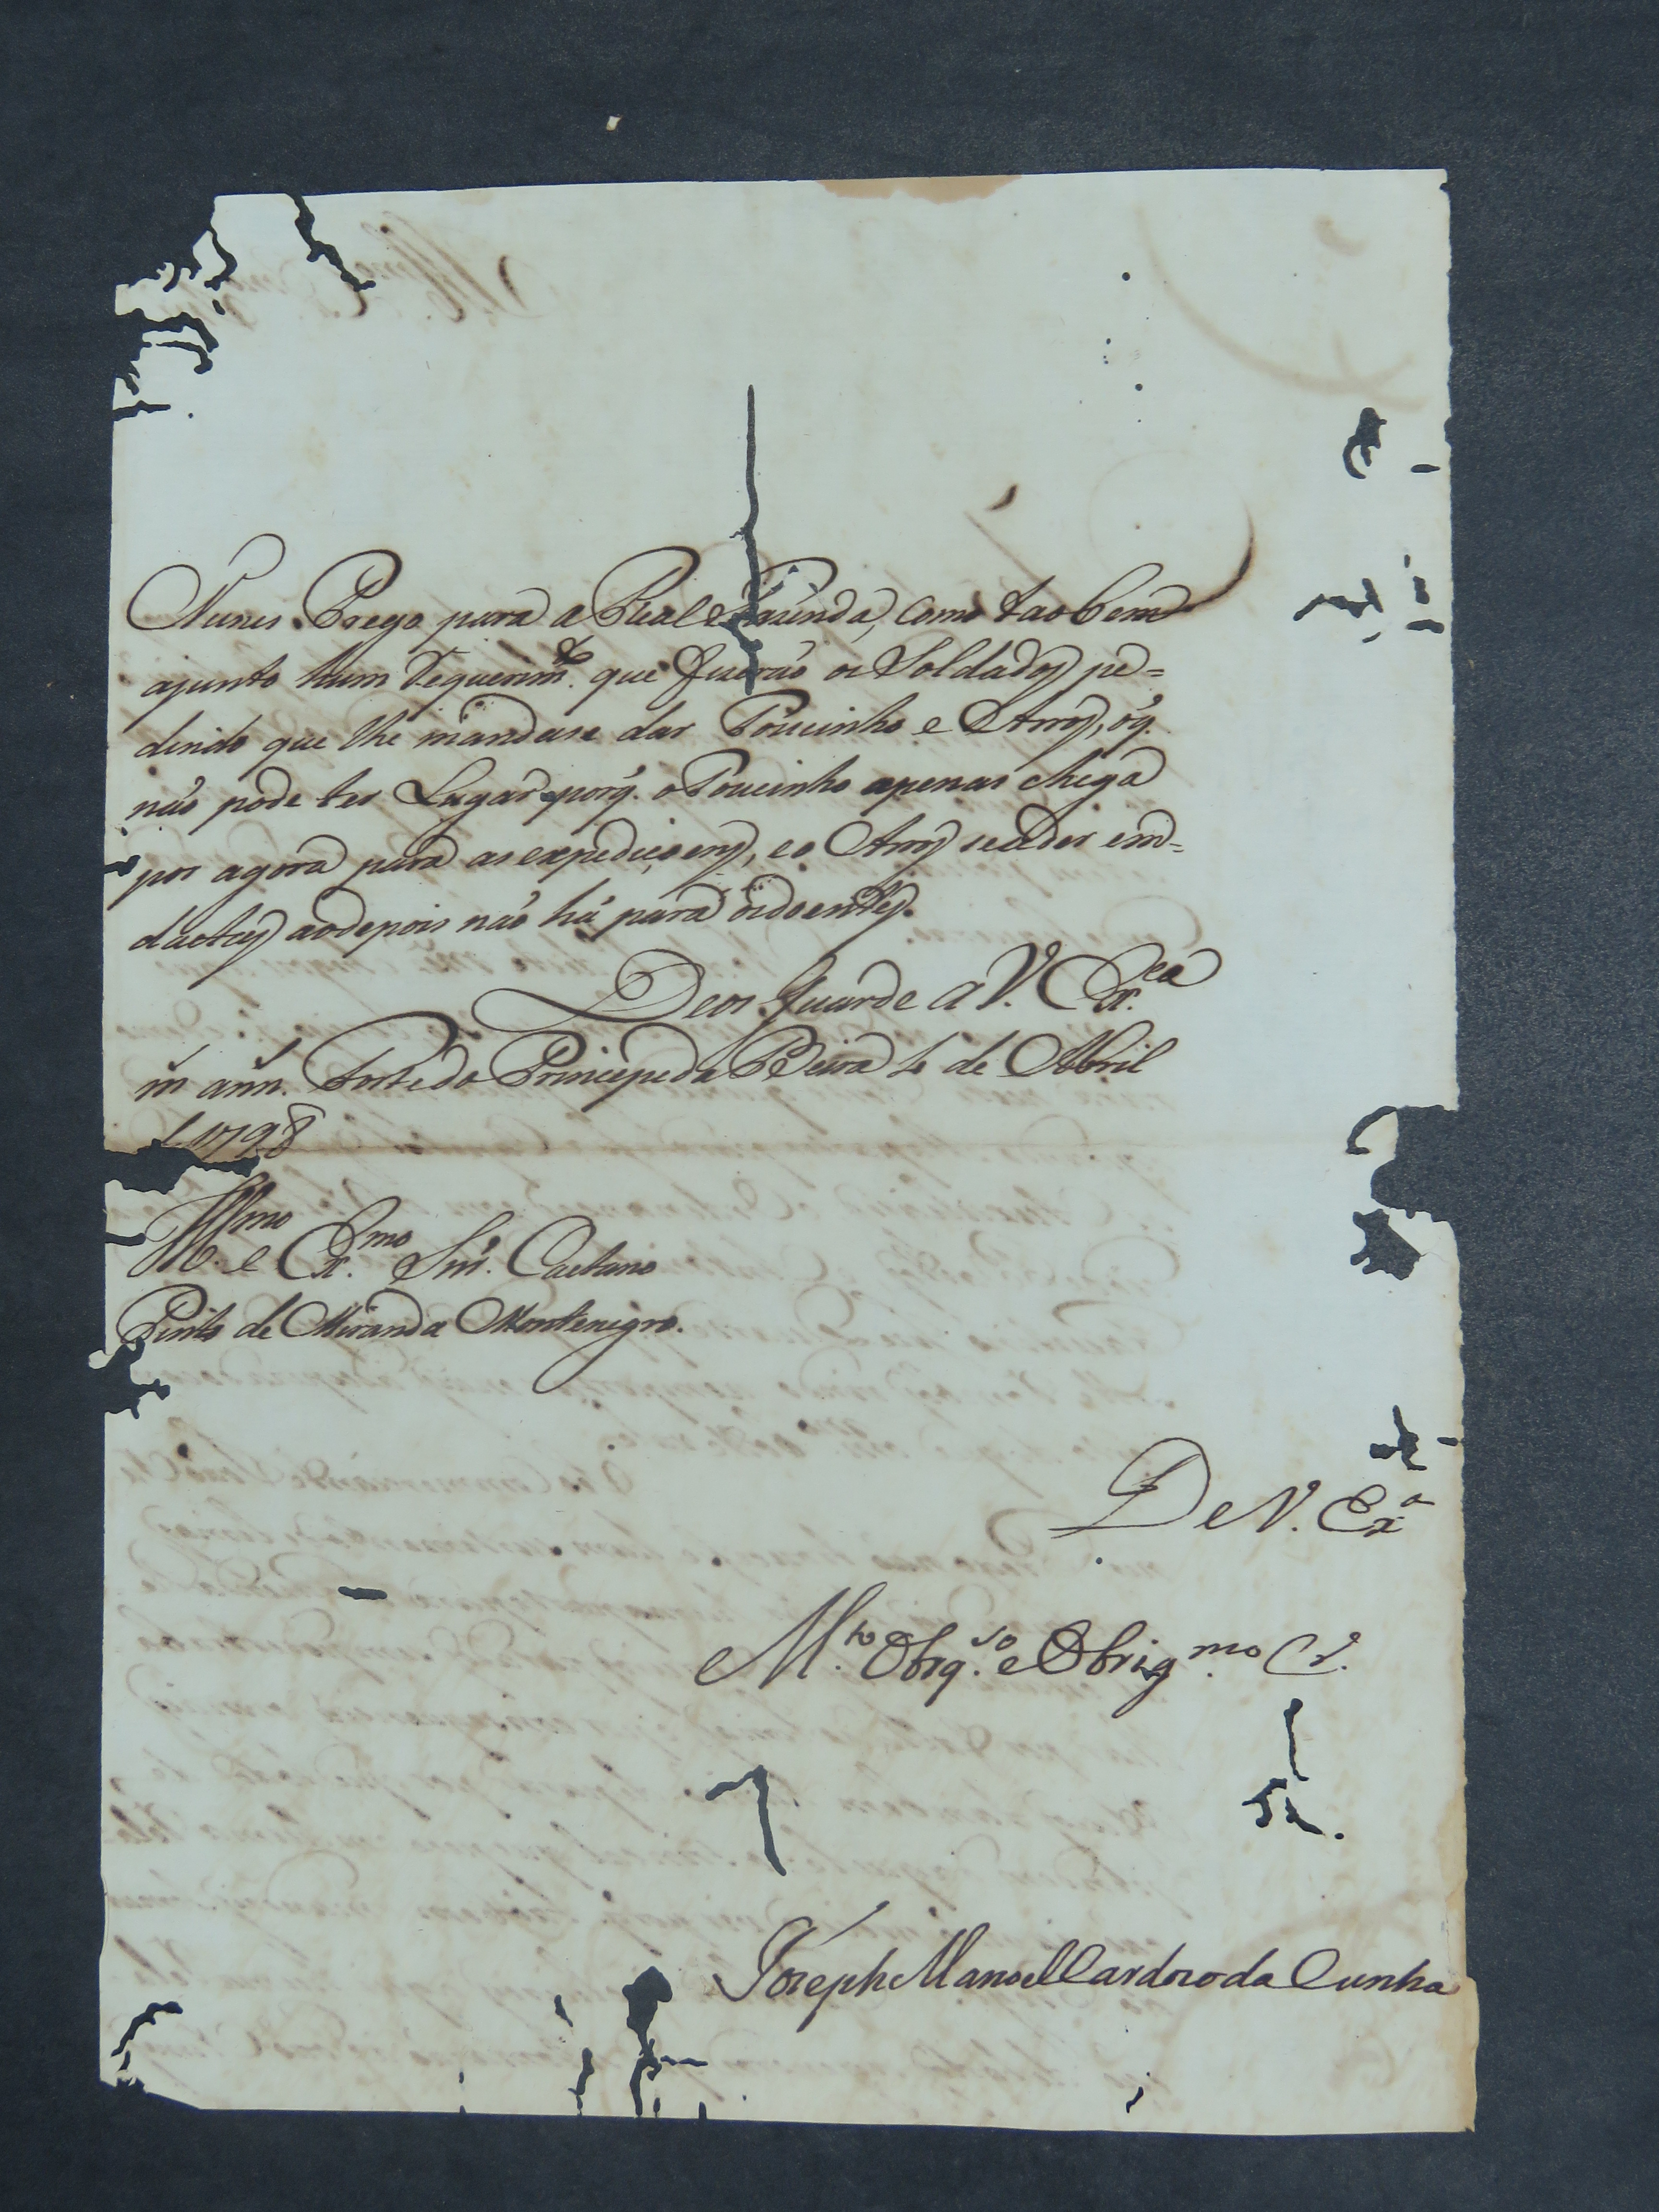 Nunes Prego para a Real Fazenda, como tao bem
ajunto hum Requerim.to que fizerão os Soldados pe=
dindo que lhe mandase dar Toucinho e Arros, oq.
não pode ter Lugar porq. o Toucinho apenas chega
por agora para as expediçoens, e o Arros se der em
aodepois não há para os doentes.
Deos Guarde a V. Ex.cia
m ann. Forte do Principe da Beira 4 de Abril
1798
Ill.mo e Ex.mo Snr. Caetano
Pinto de Miranda Montenegro.
De V. Ex.a
M.to Obzq.zo e Obrig.mo Cr.
Joseph Manoel Cardozo da Cunha